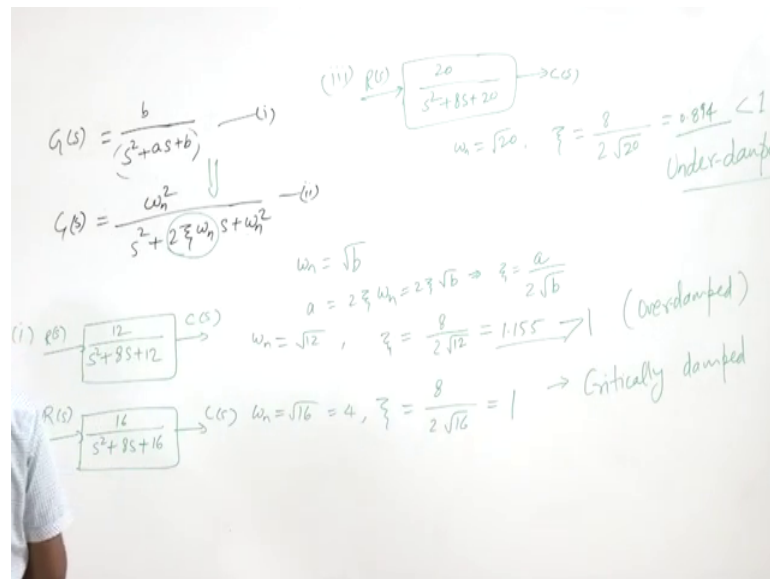 (iii) R(s) 20 / s²+8s+20 → C(s)
G(s) = b / (s²+as+b) —(i)
ωn = √20, ξ = 8 / 2√20 = 0.894 < 1
⇓
G(s) = ωn² / s²+2ξωn s+ωn² —(ii)
ωn = √b
a = 2ξωn = 2ξ√b ⇒ ξ = a / 2√b
(i) R(s) 12 / s²+8s+12 C(s) ωn = √12, ξ = 8 / 2√12 = 1.155 > 1 (overdamped)
R(s) 16 / s²+8s+16 → C(s) ωn = √16 = 4, ξ = 8 / 2√16 = 1 → Critically damped